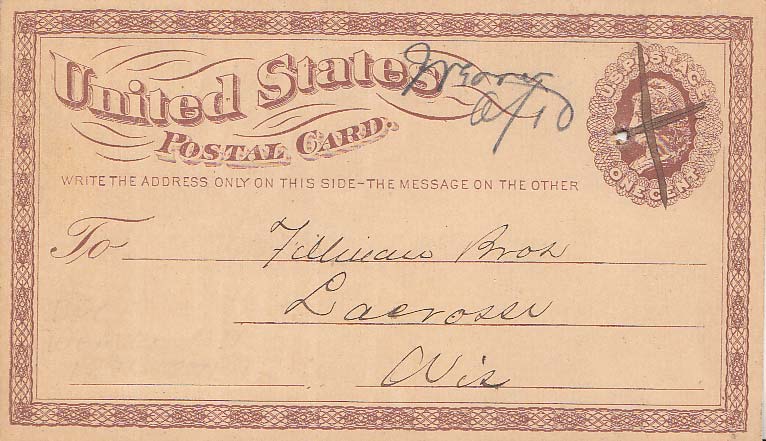 United States
POSTAL CARD.
Weaver
a/10
U.S. POSTAGE
ONE CENT
WRITE THE ADDRESS ONLY ON THIS SIDE-THE MESSAGE ON THE OTHER
To Bros
Lacrosse
Wis